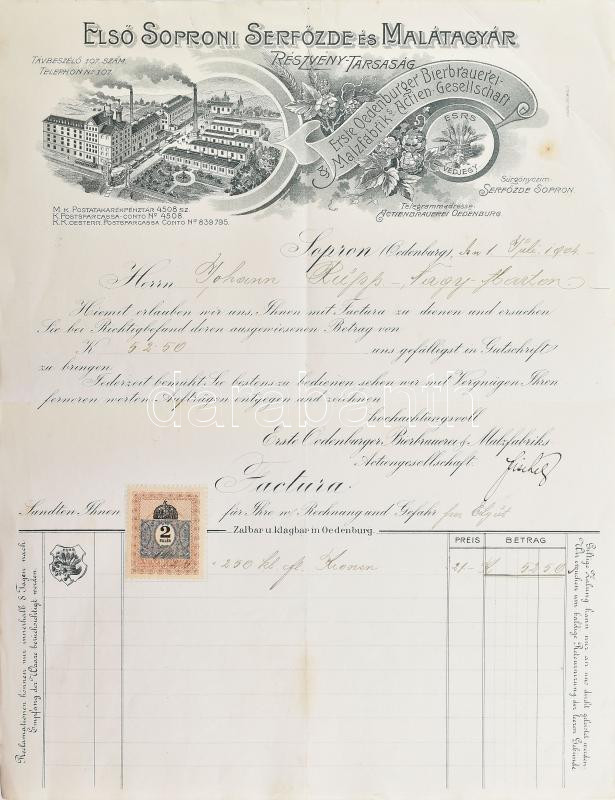 ELSŐ SOPRONI SERFŐZDE ÉS MALÁTAGYÁR
RÉSZVÉNY-TÁRSASÁG
TÁVBESZÉLŐ 107. SZÁM.
TELEPHON No 107.
Erste Oedenburger Bierbrauerei-
& Malzfabriks Actien-Gesellschaft
ESRS
VÉDJEGY
Sürgönyczim:
SERFŐZDE SOPRON.
Telegrammadresse:
ACTIENBRAUEREI OEDENBURG.
M. K. POSTATAKARÉKPÉNZTÁR 4508 SZ.
K. POSTSPARCASSA-CONTO No 4508.
K. K. OESTERR. POSTSPARCASSA CONTO No 839.795.
Sopron (Oedenburg), den 1. Juli 1904.
Herrn Johann Rupp Nagy-Marton
Hiemit erlauben wir uns, Ihnen mit Factura zu dienen und ersuchen
Sie bei Richtigbefund deren ausgewiesenen Betrag von
K 52.50 uns gefälligst in Gutschrift
zu bringen.
Jederzeit bemüht Sie bestens zu bedienen sehen wir mit Vergnügen Ihren
ferneren werten Aufträgen entgegen und zeichnen
hochachtungsvoll
Erste Oedenburger Bierbrauerei & Malzfabriks
Actiengesellschaft.
Factura.
Sandten Ihnen für Ihre w. Rechnung und Gefahr
Zalbar u. klagbar in Oedenburg.
PREIS BETRAG
2
250 21 K 52 50
Reclamationen können nur innerhalb 8 Tagen nach
Empfang der Waare berücksichtigt werden.
Giltige Zalung kann nur an uns direkt geleistet werden
Wir ersuchen um baldige Retournirung der leeren Gebinde
darabanth